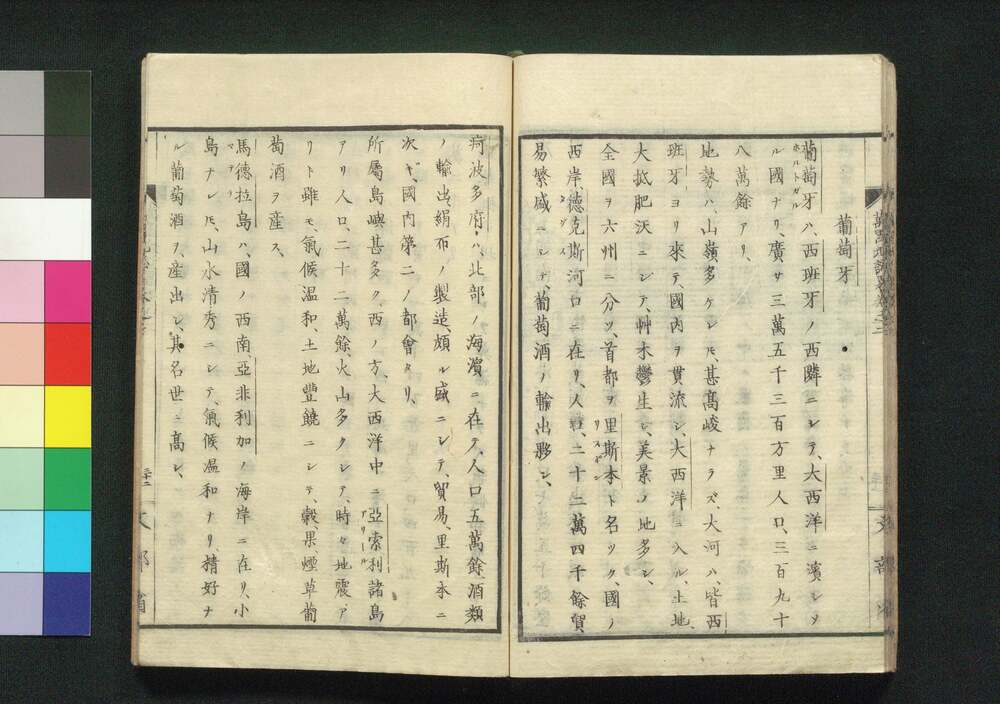 葡萄牙
葡萄牙ハ、西班牙ノ西隣ニシテ、大西洋ニ濱シタ
ホルトガル
ル國ナリ、廣サ三萬五千三百方里人口、三百九十
八萬餘アリ、
地勢ハ、山嶺多ケレㇳ゙モ、甚高峻ナラズ、大河ハ、皆西
班牙ヨリ來テ、國内ヲ貫流シ大西洋ニ入ル、土地、
大抵肥沃ニシテ、艸木鬱生シ、美景ノ地多シ、
全國ヲ六州ニ分ツ、首都ヲ里斯本ト名ヅク、國ノ
リスボン
西岸德克斯河口ニ在リ、人口、二十二萬四千餘貿
易繁盛ニシテ、葡萄酒ノ輸出夥シ、
疴波多府ハ、北部ノ海濱ニ在テ、人口五萬餘酒類
ノ輸出、絹布ノ製造、頗ル盛ニシテ、貿易、里斯本ニ
次ギ、國内第二ノ都會タリ、
所屬島嶼甚多ク、西ノ方、大西洋中ニ亞索利諸島
アリ人口、二十二萬餘、火山多クシテ、時々地震ア
リト雖モ、氣候温和、土地豐饒ニシテ、穀、果、煙草葡
萄酒ヲ産ス、
馬德拉島ハ、國ノ西南、亞非利加ノ海岸ニ在リ、小
マデイラ
島ナレㇳ゙モ、山水清秀ニシテ、氣候温和ナリ、精好ナ
ル葡萄酒ヲ、産出シ、其名世ニ高シ、
文部省